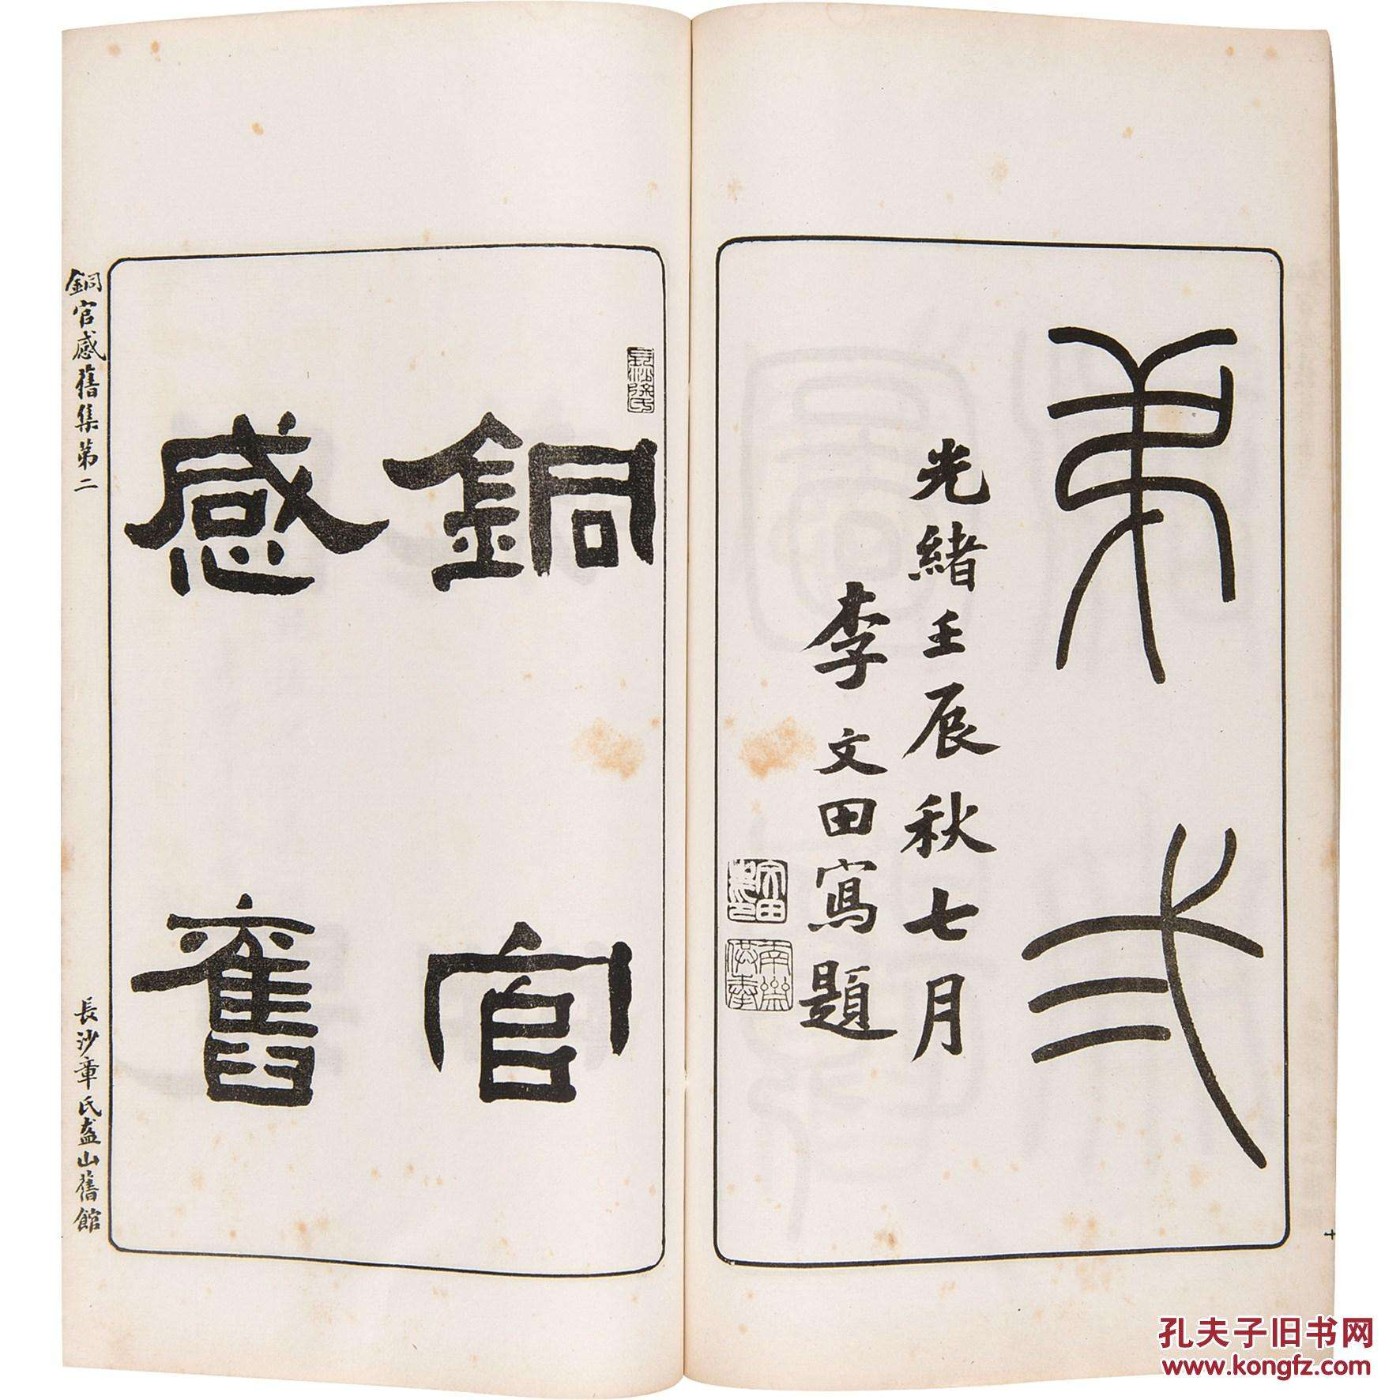 弟弍
光緒壬辰秋七月
李文田寫題
南齋供奉
銅官
感舊
銅官感舊集第二
長沙章氏山舊館
孔夫子旧书网
www.kongfz.com